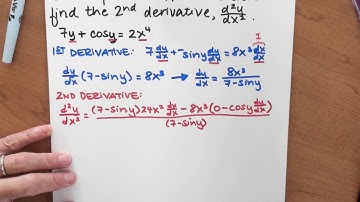 find the 2nd derivative, d²y/dx².
7y + cosy = 2x⁴
1
1ST DERIVATIVE: 7 dy/dx + -siny dy/dx = 8x³ dx/dx
dy/dx (7-siny) = 8x³ → dy/dx = 8x³/7-siny
2ND DERIVATIVE:
d²y/dx² = (7-siny)24x² dx/dx - 8x³(0-cosy dy/dx)/(7-siny)